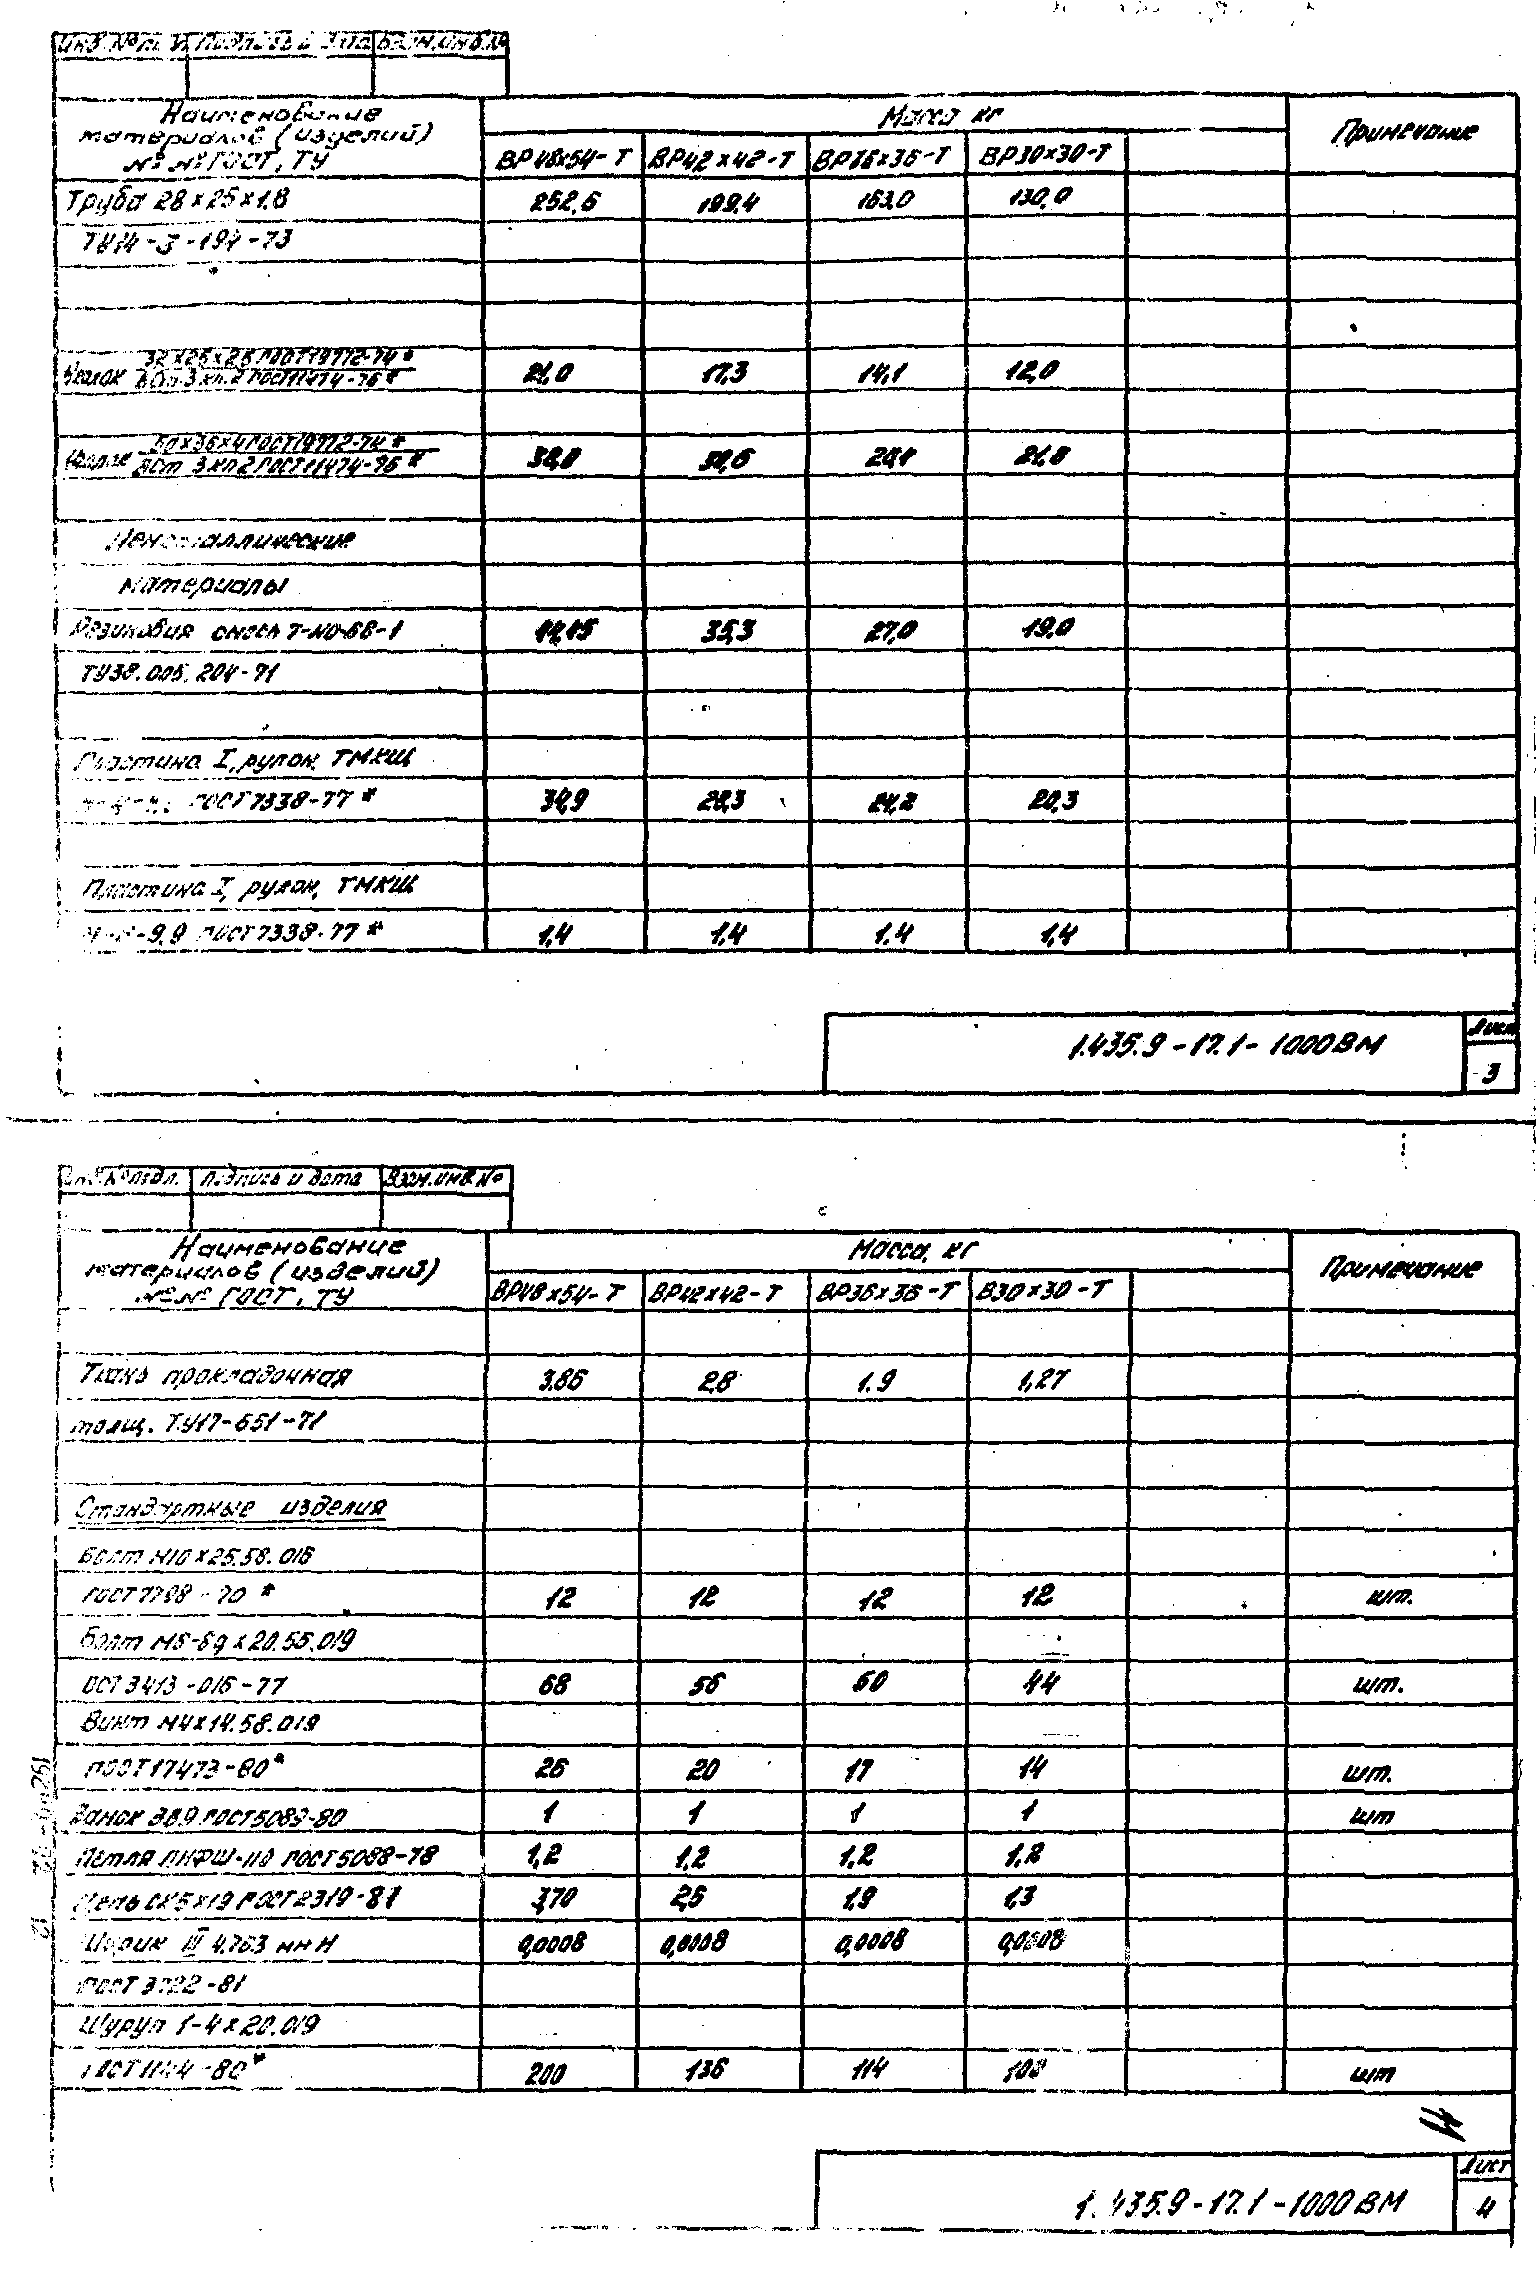 Подпись и дата Взам.инв.№
Наименование
материалов (изделий)
№ № ГОСТ, ТУ
Масса кг
Примечание
ВР48х54-Т ВР42х42-Т ВР36х36-Т ВР30х30-Т
Труба 28х25х1,8 252,6 199,4 163,0 130,0
ТУ14-3-194-73
ГОСТ19772-74*
Уголок 21,0 17,3 14,1 12,0
ГОСТ11474-76*
50х36х4 ГОСТ19772-74*
Уголок
ВСт 3 кп 2 ГОСТ11474-76* 21,8
Неметаллические
материалы
Резиновая смесь 35,3 27,0 19,0
ТУ38.005.204-71
Пластина I, рулон, ТМКЩ
ГОСТ7338-77* 34,9 28,3 24,2 20,3
Пластина I, рулон, ТМКЩ
ГОСТ7338-77* 1,4 1,4 1,4 1,4
1.435.9-17.1-1000ВМ
Лист
3
Подпись и дата Взам.инв.№
Наименование
материалов (изделий)
№ № ГОСТ, ТУ
Масса, кг
Примечание
ВР48х54-Т ВР42х42-Т ВР36х36-Т В30х30-Т
Ткань прокладочная 3,86 2,8 1.9 1,27
толщ. ТУ17-651-71
Стандартные изделия
Болт М10х25.58.016
ГОСТ7798-70* 12 12 12 12 шт.
Болт М5-6gх20.56.019
ОСТ 3413-016-77 68 56 50 44 шт.
Винт М4х14.58.019
ГОСТ17473-80* 26 20 17 14 шт.
Замок ГОСТ5089-80 1 1 1 1 шт
Петля ПНФШ-110 ГОСТ5088-78 1,2 1,2 1,2 1,2
Цепь СК5х19 ГОСТ2319-81 3,70 2,6 1,9 1,3
Шарик III 4.763 мм Н 0,0008 0,0008 0,0008 0,0008
ГОСТ 3722-81
Шуруп 1-4х20.019
ГОСТ1144-80* 200 136 114 108 шт
1.435.9-17.1-1000ВМ
Лист
4